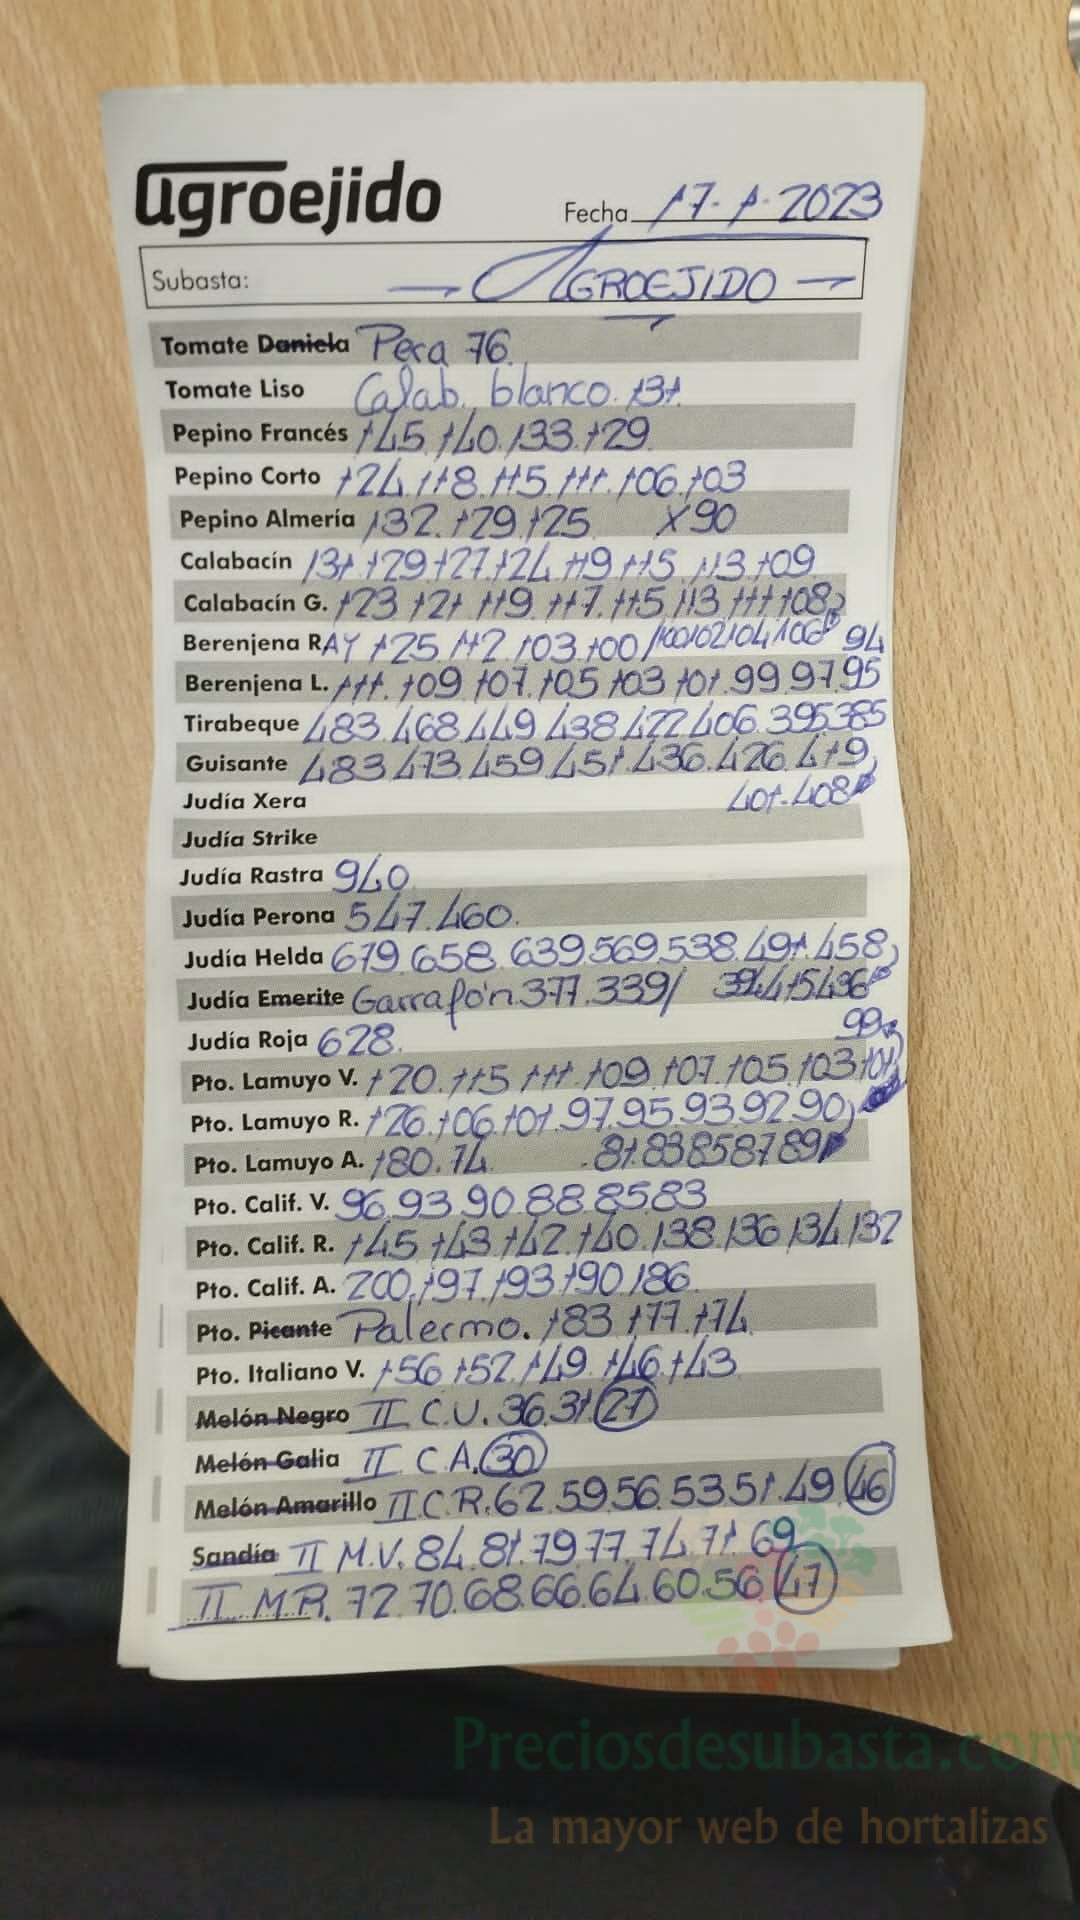 agroejido
Fecha 17-1-2023
Subasta: AGROEJIDO
Tomate Daniela Pera 76.
Tomate Liso Calab. blanco. 131.
Pepino Francés 145.140.133.129
Pepino Corto 124.118.115.111.106.103
Pepino Almería 132.129.125 X90
Calabacín 131.129.127.124.119.115.113.109
Calabacín G. 123.121.119.117.115.113.111.108
Berenjena RAY 125.112.103.100/100102104106 94
Berenjena L. 111.109.107.105.103.101.99.97.95
Tirabeque 483.468.449.438.422.406.395.385
Guisante 483.473.459.451.436.426.419
Judía Xera 401.408
Judía Strike
Judía Rastra 940
Judía Perona 547.460.
Judía Helda 679.658.639.569.538.491.458
Judía Emerite Garrafón.377.339/ 394415436
Judía Roja 628. 99
Pto. Lamuyo V. 120.115.111.109.107.105.103.101
Pto. Lamuyo R. 126.106.101.97.95.93.92.90
Pto. Lamuyo A. 180.74. .81.83858789
Pto. Calif. V. 96.93.90.88.85.83
Pto. Calif. R. 145.143.142.140.138.136.134.132
Pto. Calif. A. 200.197.193.190.186
Pto. Picante Palermo. 183.177.174
Pto. Italiano V. 156.152.149.146.143
Melón Negro II C.U. 36.31 27
Melón Galia II C.A. 30
Melón Amarillo II C.R. 62.59.56.53.51.49 46
Sandía II M.V. 84.81.79.77.74.71.69
II M.R. 72.70.68.66.64.60.56 47
Preciosdesubasta.com
La mayor web de hortalizas